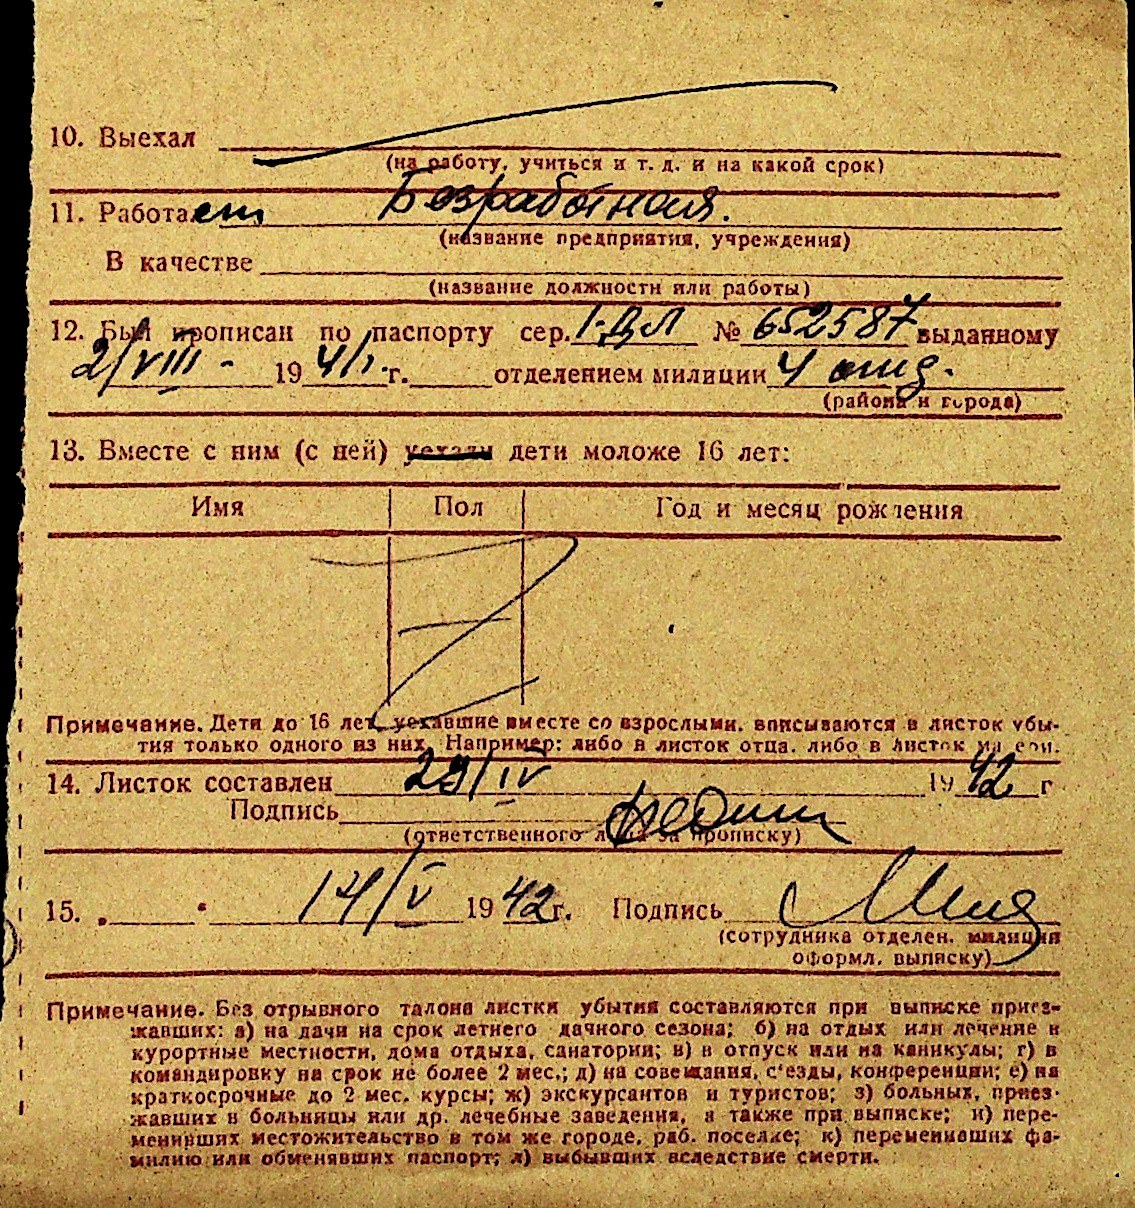 10. Выехал
(на работу, учиться и т. д. и на какой срок)
11. Работает Безработная.
(название предприятия, учреждения)
В качестве
(название должности или работы)
12. Был прописан по паспорту сер. I-ДЛ № 652587 выданному
2/VIII - 1941 г. отделением милиции 4 отд.
(района и города)
13. Вместе с ним (с ней) уехали дети моложе 16 лет:
Имя Пол Год и месяц рождения
Примечание. Дети до 16 лет, уехавшие вместе со взрослыми, вписываются в листок убы-
тия только одного из них. Например: либо в листок отца, либо в листок матери.
14. Листок составлен 29/IV 1942 г
Подпись
(ответственного лица за прописку)
15. „ “ 14/V 1942 г. Подпись
(сотрудника отделен. милиции
оформл. выписку)
Примечание. Без отрывного талона листки убытия составляются при выписке приез-
жавших: а) на дачи на срок летнего дачного сезона; б) на отдых или лечение в
курортные местности, дома отдыха, санатории; в) в отпуск или на каникулы; г) в
командировку на срок не более 2 мес.; д) на совещания, с'езды, конференции; е) на
краткосрочные до 2 мес. курсы; ж) экскурсантов и туристов; з) больных, приез-
жавших в больницы или др. лечебные заведения, а также при выписке; и) пере-
менивших местожительство в том же городе, раб. поселке; к) переменивших фа-
милию или обменявших паспорт; л) выбывших вследствие смерти.